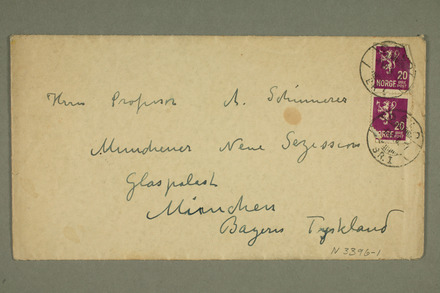 20
NORGE
20
NOREG
Herrn Professor A. Schinnerer
Münchener Neue Sezession
Glaspalast
München
Bayern Tyskland
N 3396-1